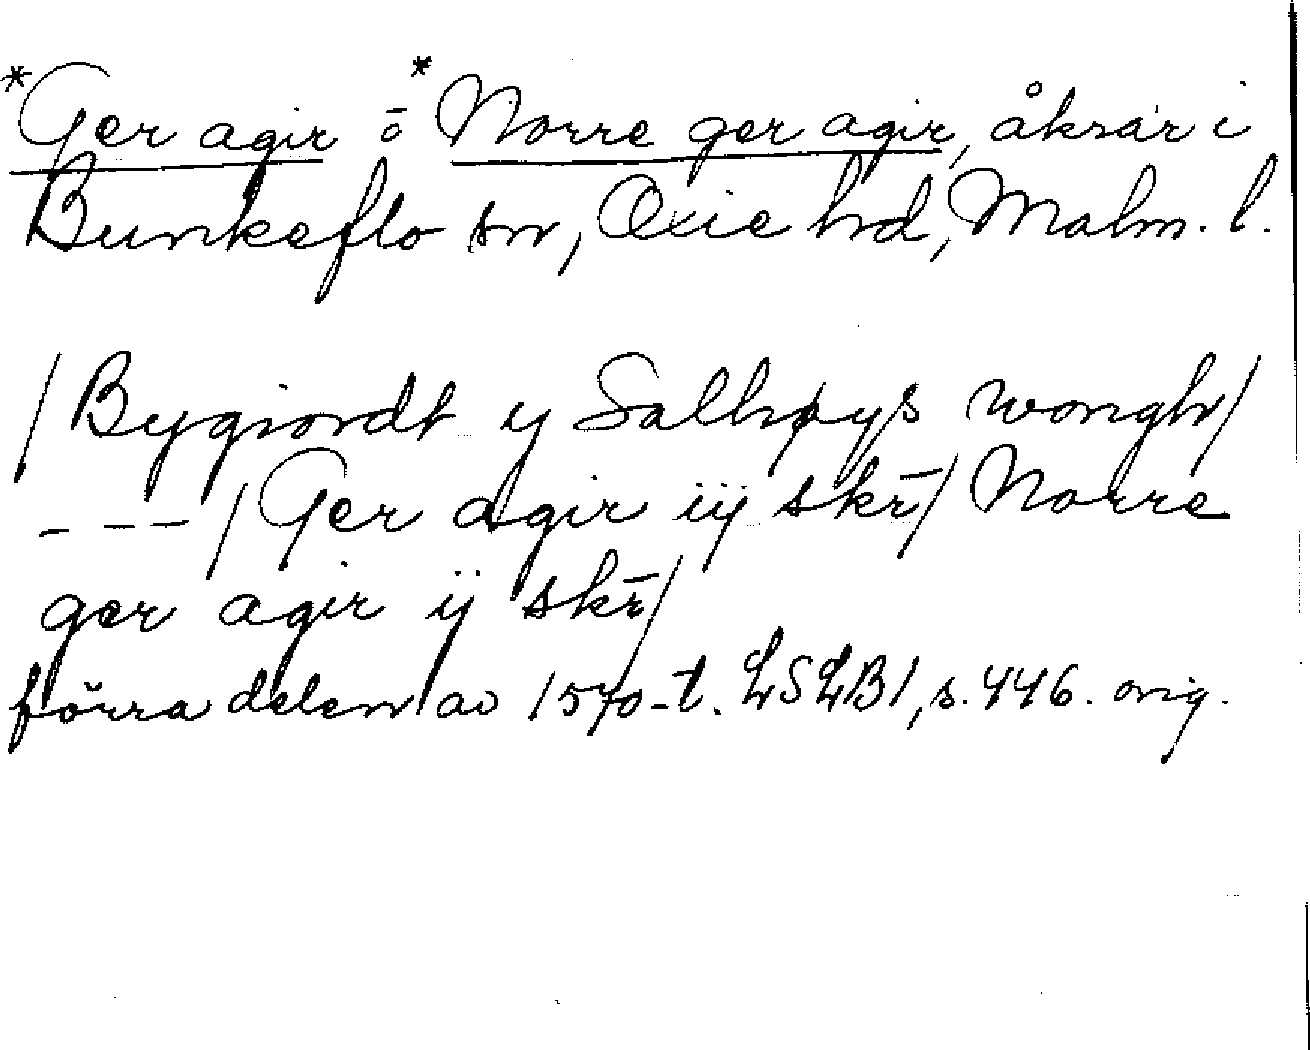 *Ger agir o *Norre ger agir, åkrar i
Bunkeflo sn, Oxie hd, Malm. l.
/Bygiordt y Salhøys wongh/
- - - / Ger agir iij skr̄/ Norre
ger agir ij skr̄/
förra delen av 1570-t. LSLB1, s. 446. orig.